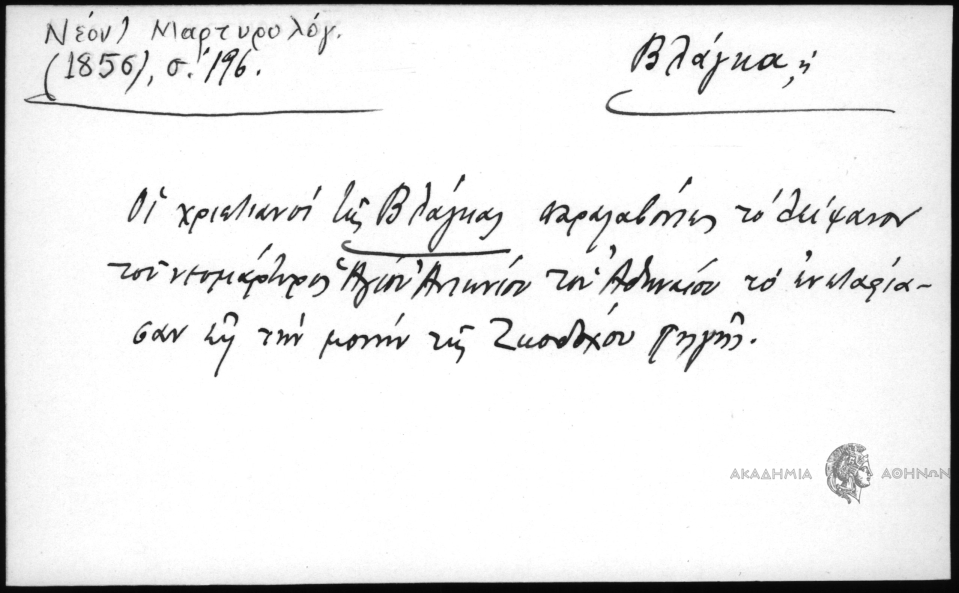 Νέον Μαρτυρολόγ.
(1856), σ. 196.
Βλάγκα, ἡ
Οἱ χριστιανοί τῆς Βλάγκας παραλαβόντες τό λείψανον
τοῦ νεομάρτυρος Ἁγίου Ἀντωνίου τοῦ Ἀθηναίου τό ἐνεταφία-
σαν εἰς τήν μονήν τῆς Ζωοδόχου Πηγῆς.
ΑΚΑΔΗΜΙΑ ΑΘΗΝΩΝ